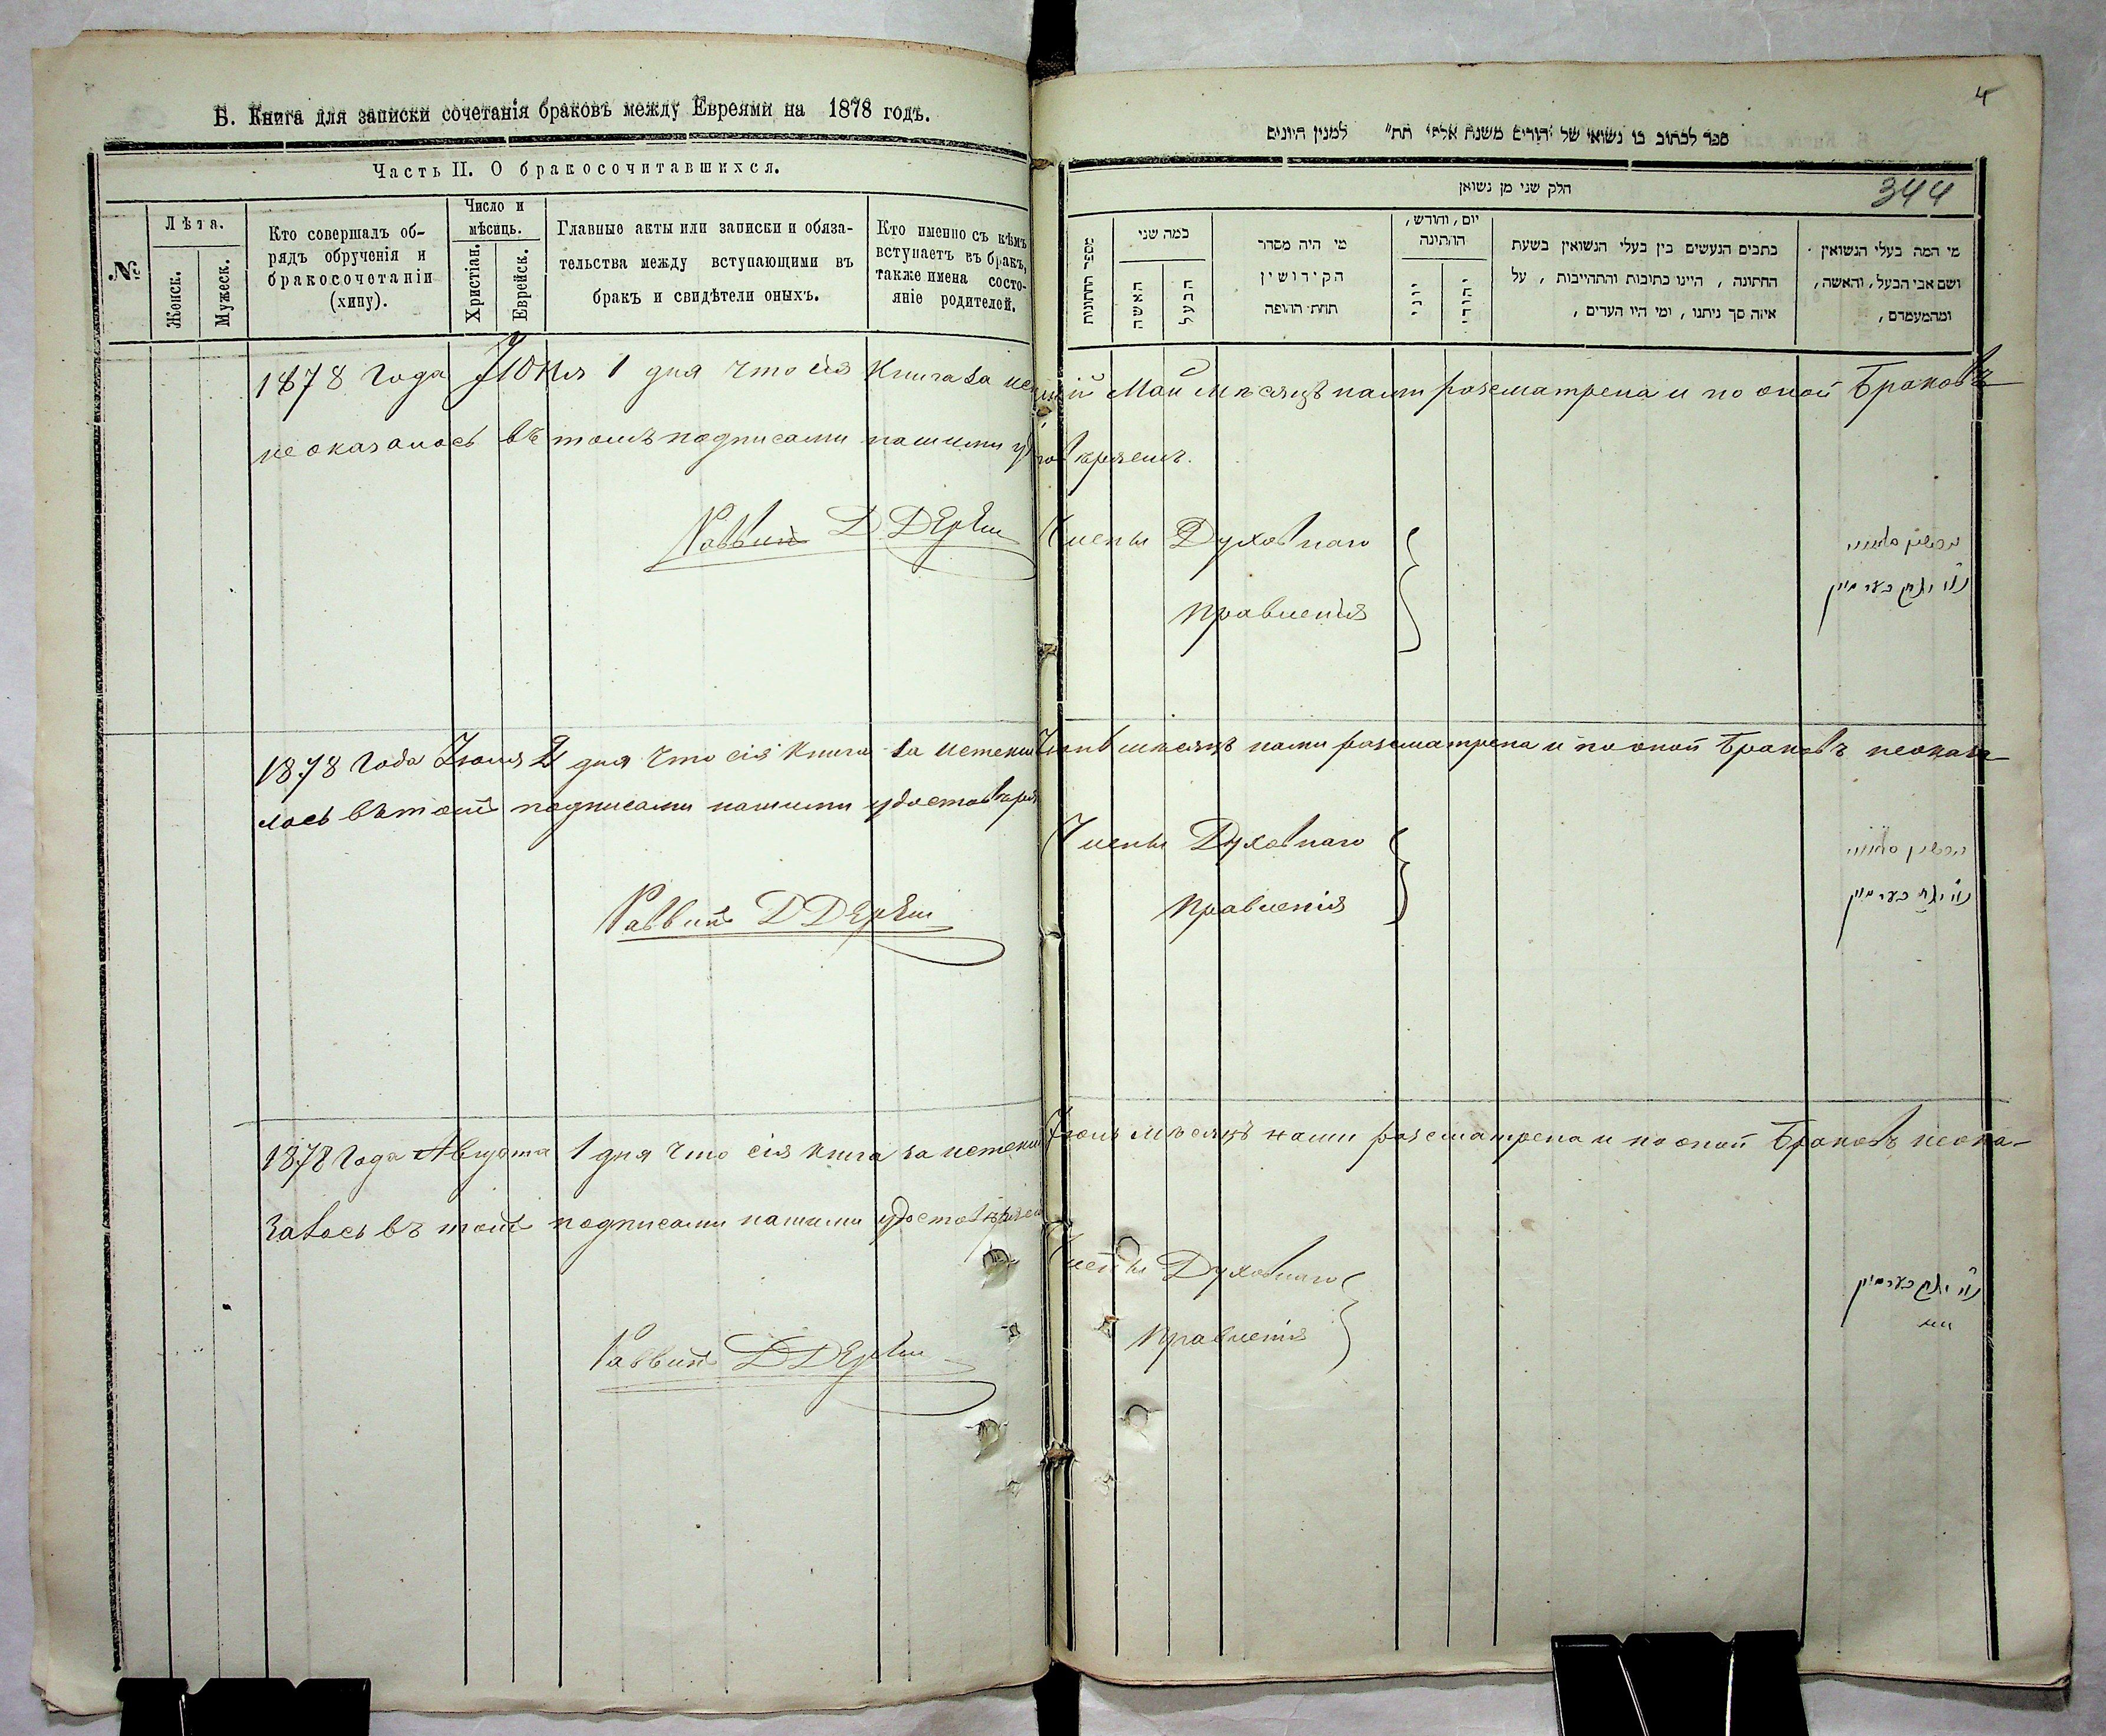 Б. Книга для записки сочетанія браковъ между Евреями на 1878 годъ.
Часть II. О бракосочитавшихся.
№
Лѣта.
Женск.
Мужеск.
Кто совершалъ об-
рядъ обрученія и
бракосочетаніи
(хипу).
Число и
мѣсяць.
Христіан.
Еврейск.
Главные акты или записки и обяза-
тельства между вступающими въ
бракъ и свидѣтели оныхъ.
Кто именно съ кѣмъ
вступаетъ въ бракъ,
также имена состо-
яніе родителей.
4
ספר לכתוב בו נשואי של יהודים משנת אלפי תת״ למנין היונים
344
חלק שני מן נשואן
מספר החתונות
כמה שני
האשה
הבעל
מי היה מסדר
הקידושין
תחת החופה
יום, וחודש,
החתונה
יוני
יהודי
כתבים הנעשים בין בעלי הנשואין בשעת
החתונה, היינו כתובות והתחייבות, על
איזה סך ניתנו, ומי היו העדים,
מי המה בעלי הנשואין
ושם אבי הבעל, והאשה,
ומהמעמדם,
1878 Года Іюня 1 дня что сія Книга за ист Май мѣсяцъ нами разсматрена и по оной Браковъ
неоказалось въ томъ подписами нашими удостовѣряемъ.
Раввинъ Д
Члены Духовнаго
правленія
1878 Года Іюля 2 дня что сія книга за истекш Іюнь мѣсяцъ нами разсматрена и по оной Браковъ неоказа-
лось въ томъ подписами нашими удостовѣря
Раввинъ Д
Члены Духовнаго
правленія
1878 Года Августа 1 дня что сія книга за истекш Іюль мѣсяцъ нами разсматрена и по оной Браковъ неока-
залось въ томъ подписами нашими удостовѣряем
Раввинъ Д
Члены Духовнаго
правленія